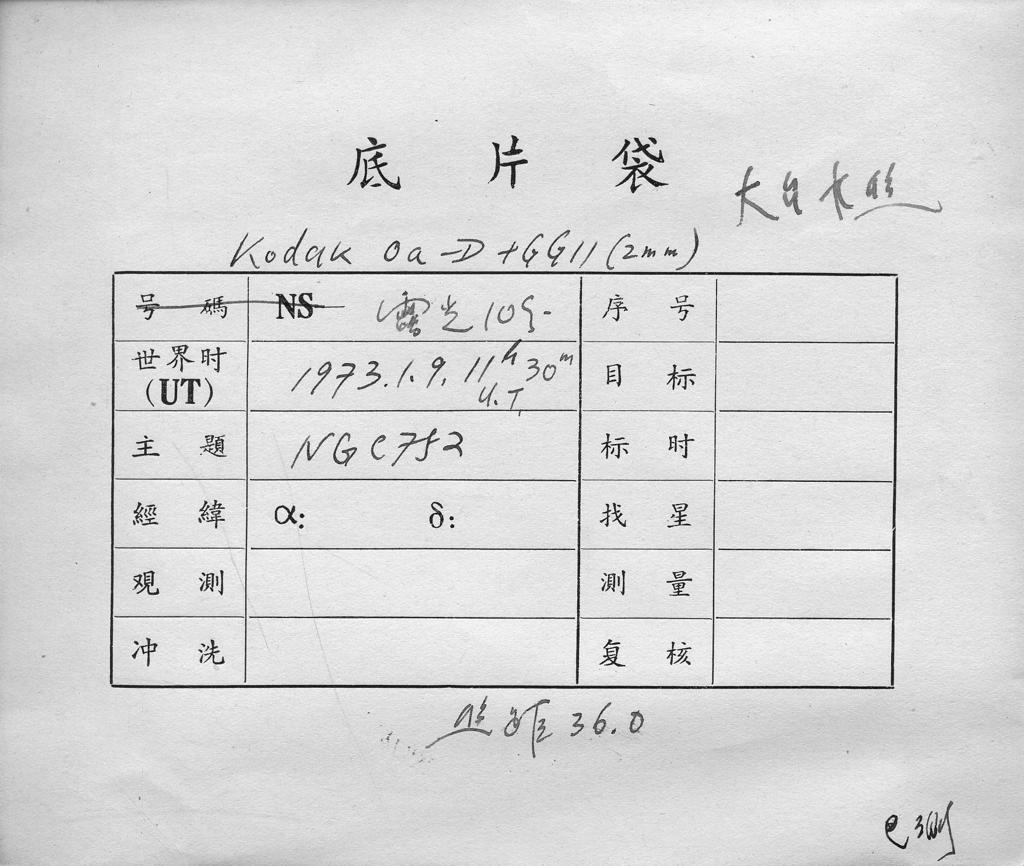 底片袋
Kodak Oa-D+GG11(2mm)
号碼 NS 露光10分 序号
世界时(UT) 1973.1.9. 11h30m U.T. 目标
主題 NGC752 标时
經緯 α: δ: 找星
观測 測量
冲洗 复核
36.0
已测